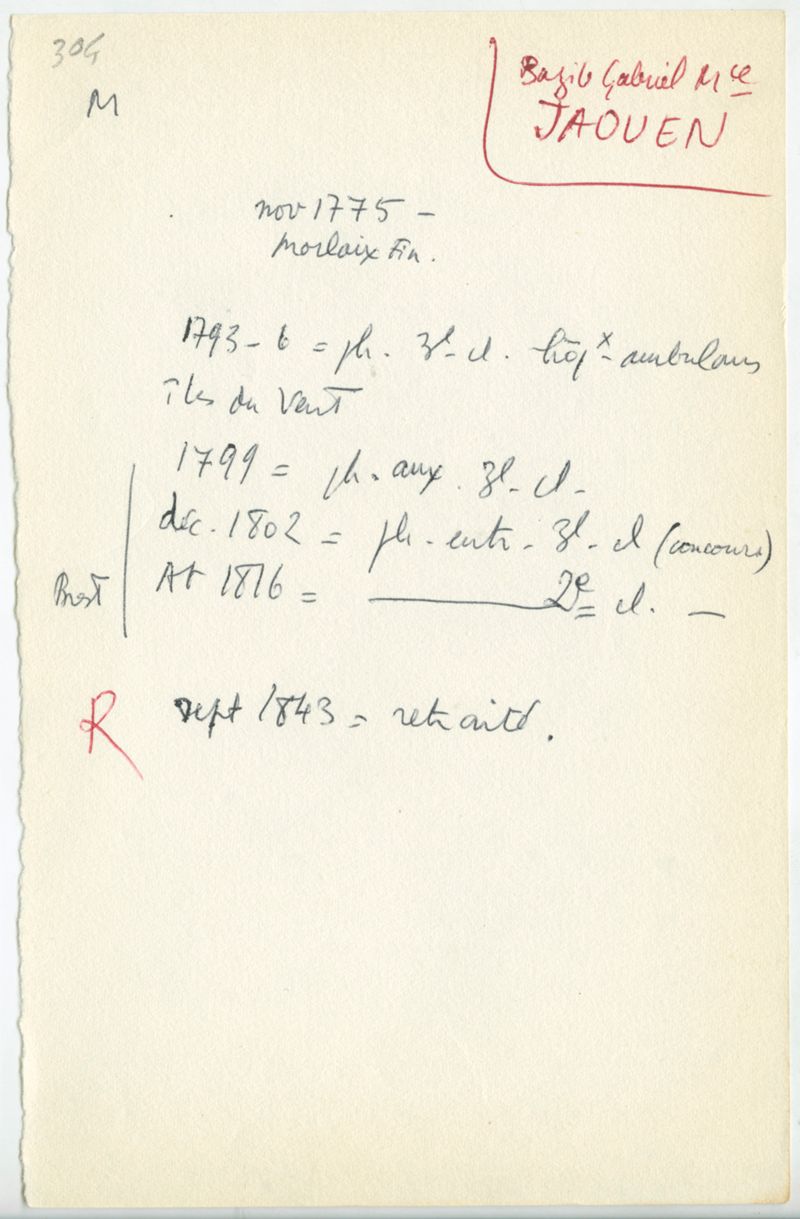 304
M
Bazile Gabriel Mce
JAOUEN
nov 1775 -
Morlaix Fin.
1793 - 6 = ph. 3e cl. hôpx ambulans
îles du Vent
1799 = ph. aux. 3e cl -
déc. 1802 = ph - entr - 3e cl (concours)
Brest
At 1816 = ——— 2e cl. —
R
sept 1843 = retraité.